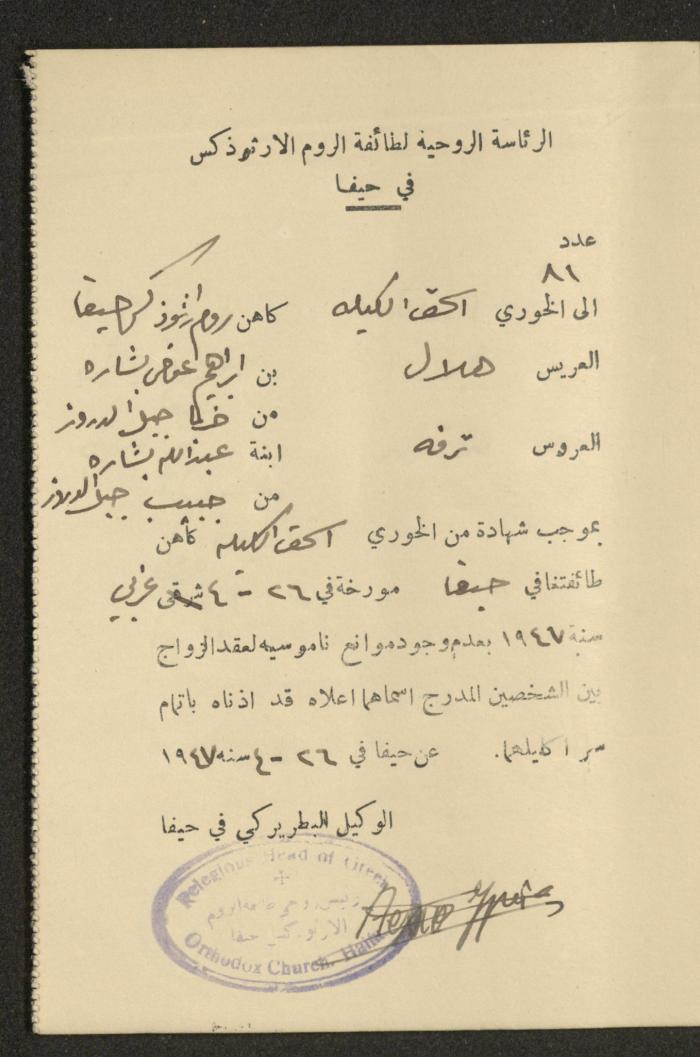 الرئاسة الروحية لطائفة الروم الارثوذكس
في حيفا
عدد
٨١
الى الخوري اسحق الكيله كاهن روم ارثوذكس حيفا
العريس هلال بن ابراهيم عوض بشاره
من جبل الدروز
العروس ترفه ابنة عبدالله بشاره
من جبيب جبل الدروز
بموجب شهادة من الخوري اسحق الكيله كاهن
طائفتنا في حيفا مورخة في ٢٦ - ٤ شرقي غربي
سنة ١٩٤٧ بعدم وجود موانع ناموسيه لعقد الزواج
بين الشخصين المدرج اسماهما اعلاه قد اذناه باتمام
سر اكليلهما. عن حيفا في ٢٦ - ٤ سنه ١٩٤٧
الوكيل البطريركي في حيفا
Relegious Head of Greek
رئيس روحي طائفة الروم
الارثوذكس حيفا
Orthodox Church, Haifa